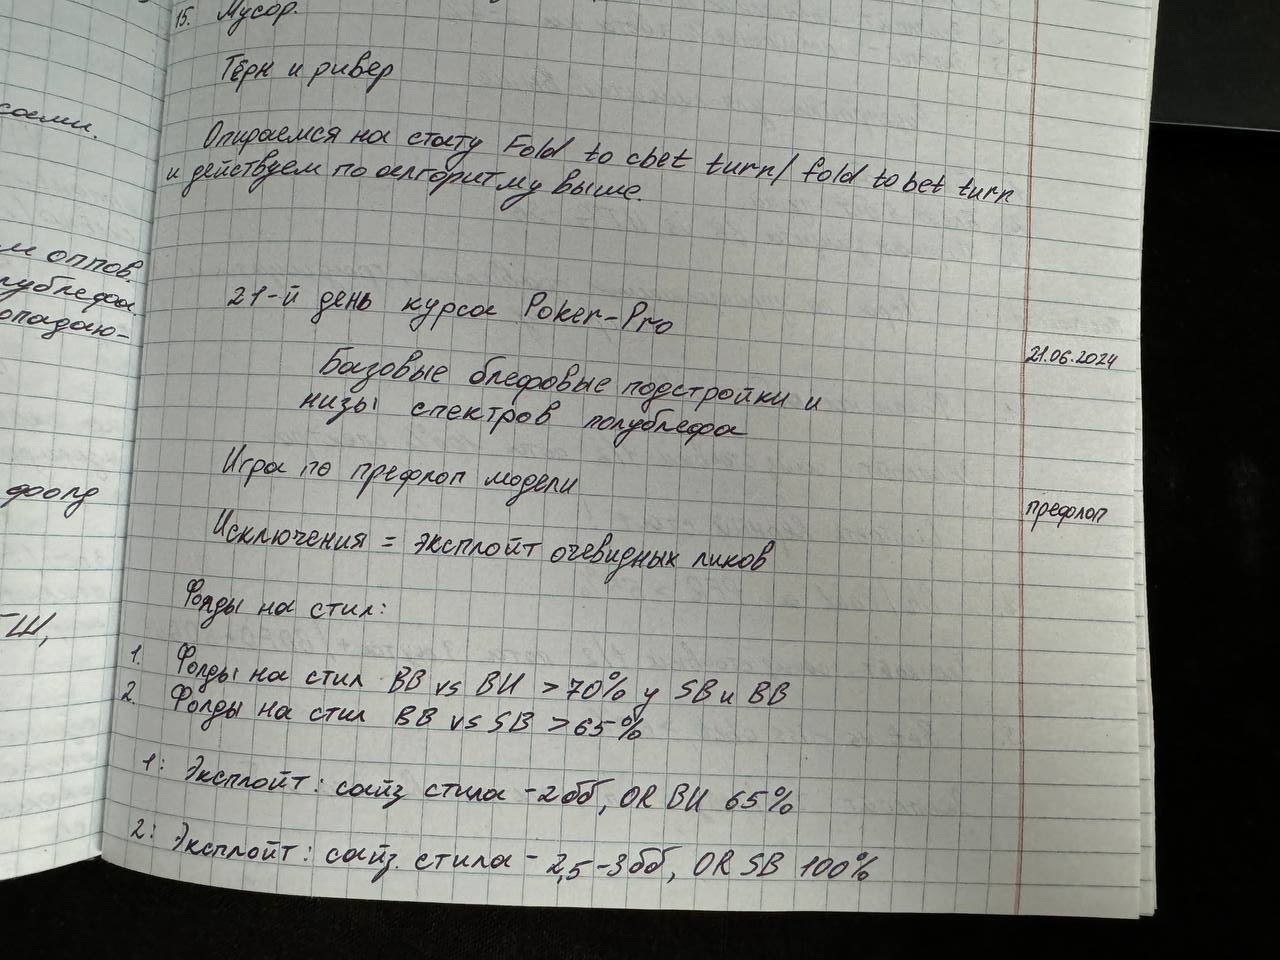 15. Мусор.
Тёрн и ривер
Опираемся на стату Fold to cbet turn/ fold to bet turn
и действуем по алгоритму выше.
21-й день курса Poker-Pro
21.06.2024
Базовые блефовые подстройки и
низы спектров полублефа
Игра по префлоп модели
префлоп
Исключения = эксплойт очевидных ликов
Фолды на стил:
1. Фолды на стил BB vs BU >70% у SB и BB
2. Фолды на стил BB vs SB >65%
1: Эксплойт: сайз стила - 2бб, OR BU 65%
2: Эксплойт: сайз. стила - 2,5-3бб, OR SB 100%
м оппов.
лублефа
опадаю-
фолд
ГШ,